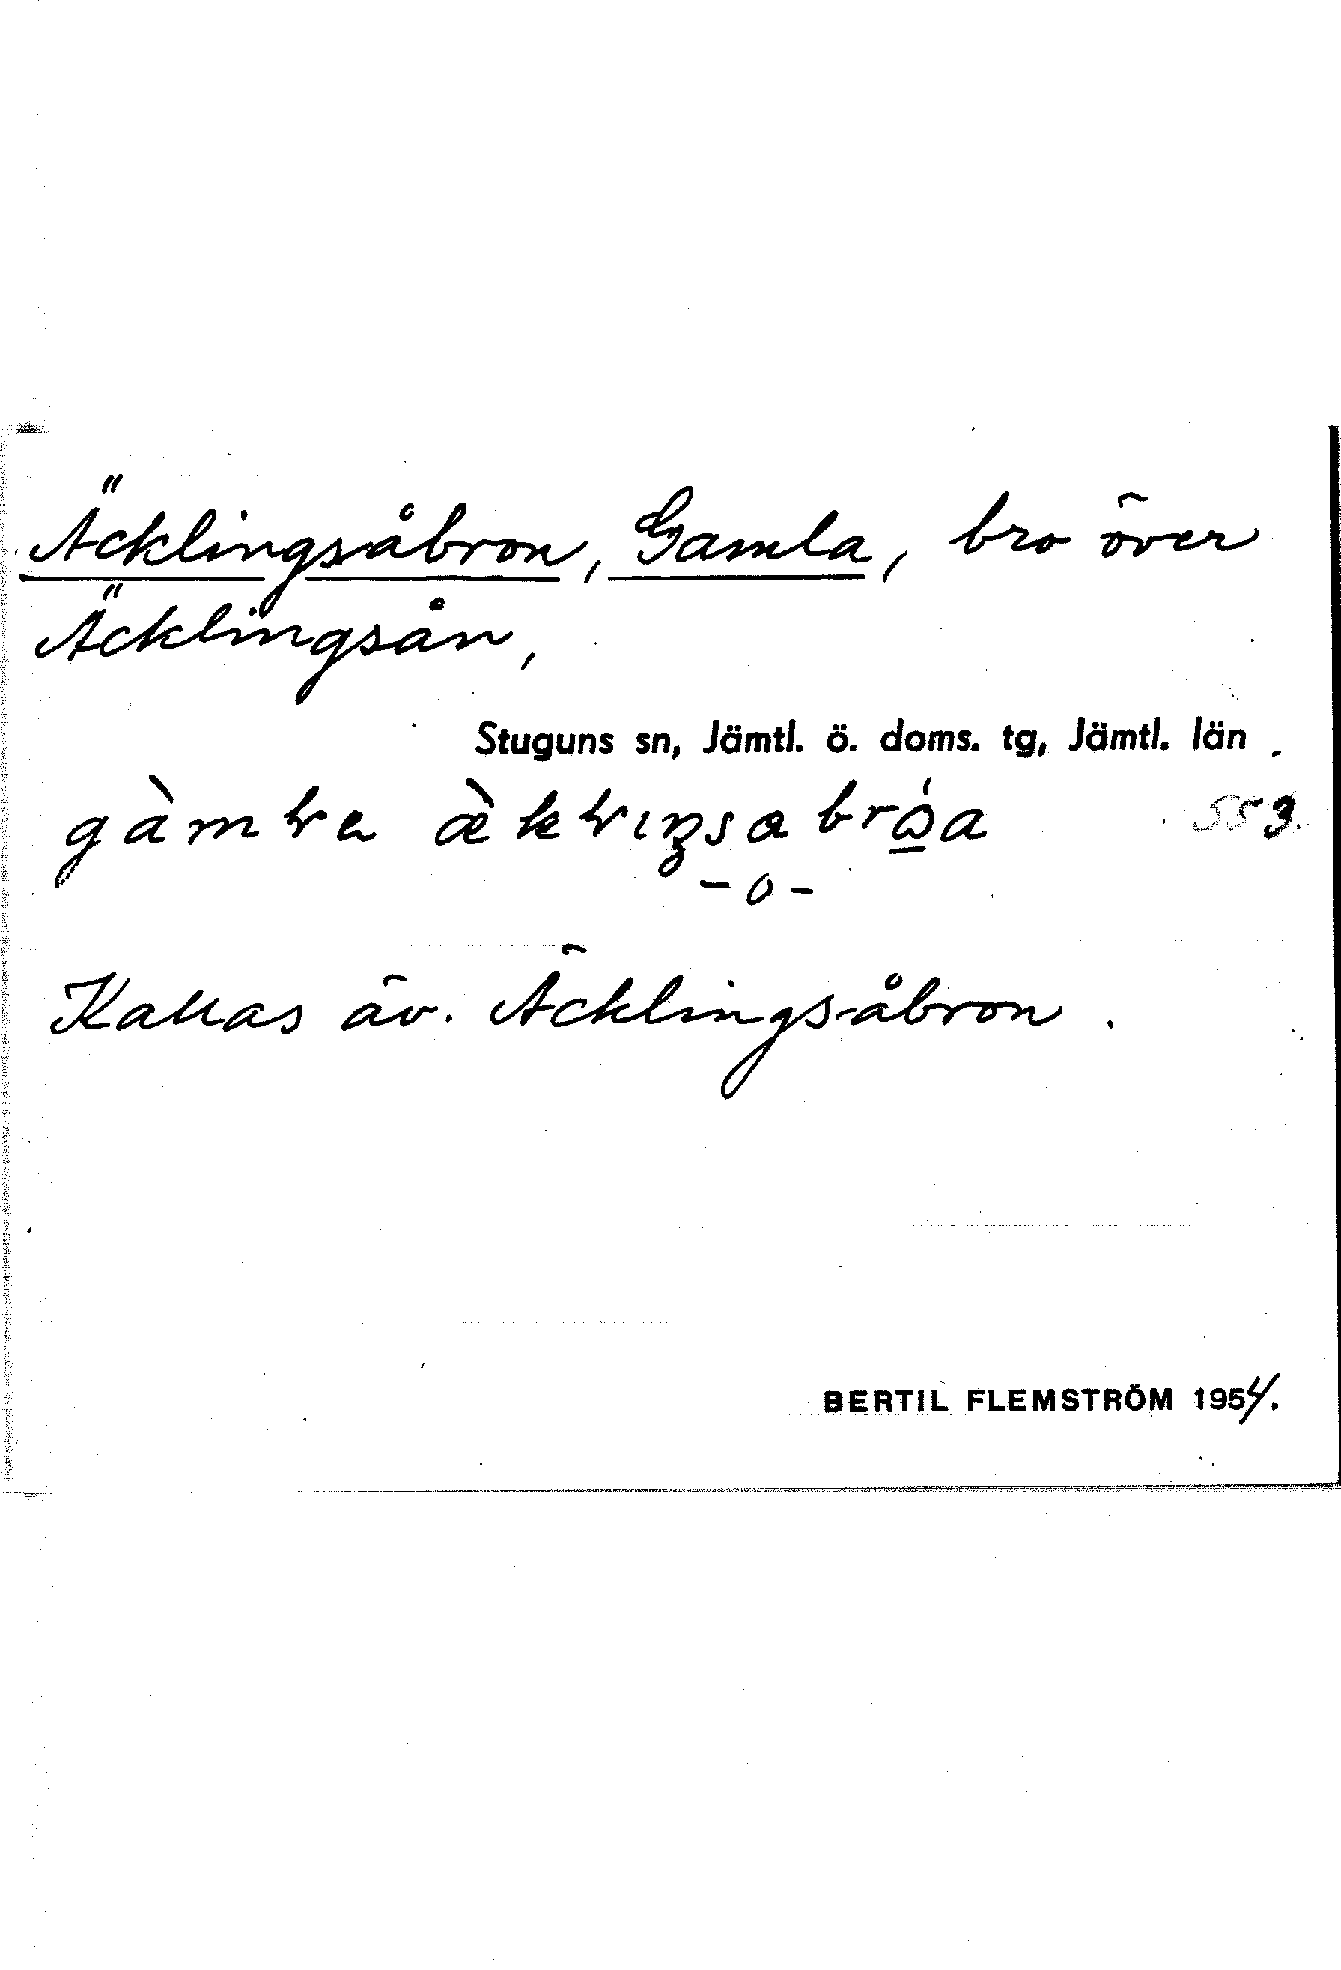 Äcklingsåbron, Gamla, bro över
Äcklingsån,
Stuguns sn, Jämtl. ö. doms. tg, Jämtl. län.
553.
-o-
Kallas äv. Äcklingsåbron.
BERTIL FLEMSTRÖM 1954.